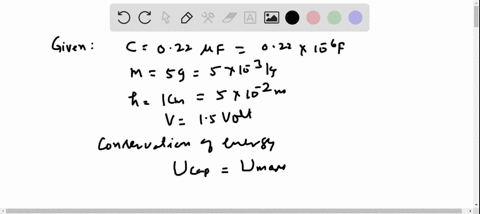 Given : C = 0.22 μF = 0.22 × 10⁻⁶F
M = 5g = 5 × 10⁻³ kg
h = 1cm = 5 × 10⁻² m
V = 1.5 Volt
Conservation of energy
Ucap = Umass